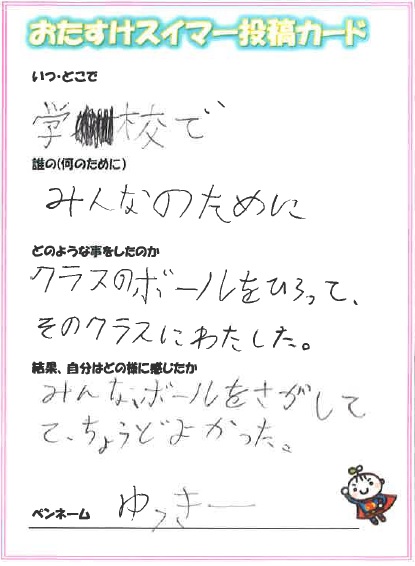 おたすけスイマー投稿カード
いつ・どこで
学校で
誰の(何のために)
みんなのために
どのような事をしたのか
クラスのボールをひろって、
そのクラスにわたした。
結果、自分はどの様に感じたか
みんな、ボールをさがして
て、ちょうどよかった。
ペンネーム ゆっきー